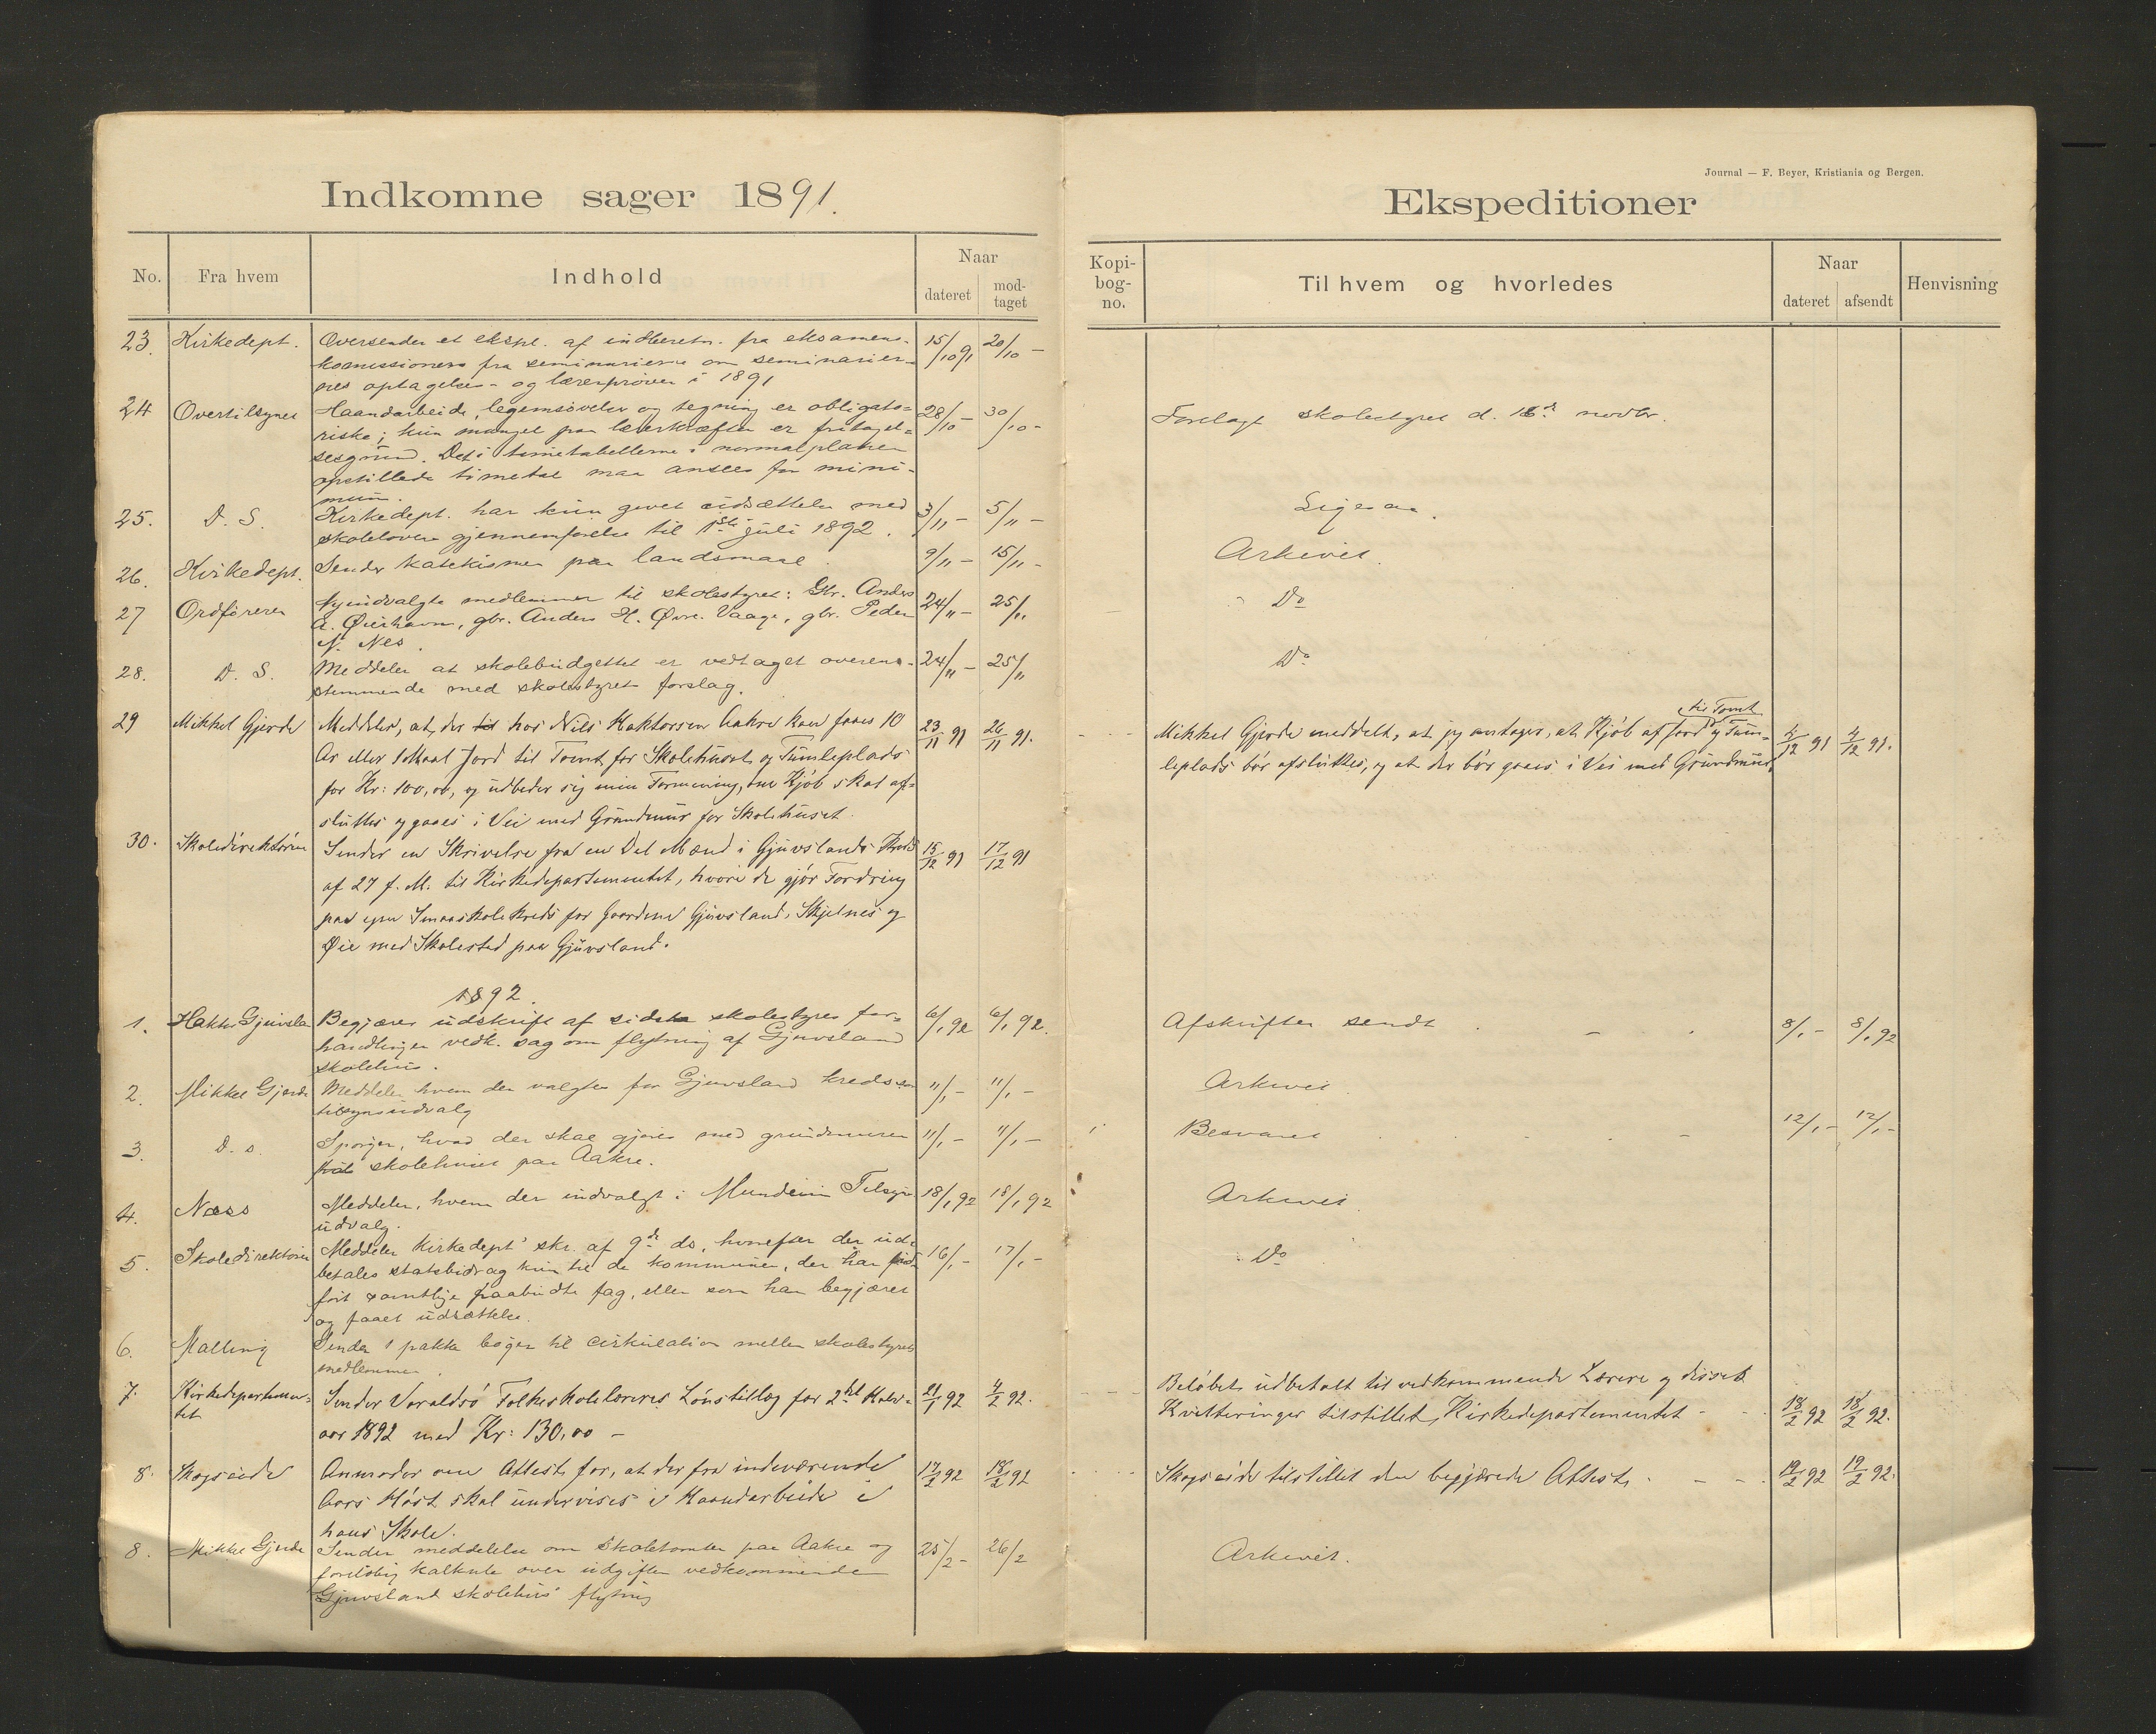 Indkomne sager 1891.
No.
Fra hvem
Indhold
Naar
dateret
mod-
taget
23. Kirkedept. Oversender et ekspl. af indberetn. fra eksamens- 15/10 91 20/10 –
kommissionen fra seminarierne om seminarier-
nes optagelses- og lærerprøver i 1891
24 Overtilsynet Haandarbeide, legemsøvelser og tegning er obligato= 28/10 – 30/10 –
riske; kun mangel paa lærerkræfter er fritagel=
sesgrund. Det i timetabellerne i normalplanen
opstillede timetal maa ansees for mini-
mum.
25. D. S. Kirkedept. har kun givet udsættelse med 3/11 – 5/11 –
skolelovens gjennemførelse til 1ste juli 1892.
26. Kirkedept. Sender katekismen paa landsmaal. 9/11 – 15/11 –
27 Ordføreren Nyindvalgte medlemmer til skolestyret: Gbr. Anders 24/11 – 25/11
A. Øierhavn, gbr. Anders H. Øvre Vaage, gbr. Peder
N. Nes.
28. D. S. Meddeler at skolebudgettet er vedtaget overens- 24/11 – 25/11
stemmende med skolestyrets forslag.
29 Mikkel Gjerde Meddeler, at der til hos Nils Haktorsen Aakre kan faaes 10 23/11 91 26/11 91.
Ar eller 1 Maal Jord til Tomt for Skolehuset og Tumleplads
for Kr: 100,00, og udbeder sig min Formening, om Kjøb skal af-
sluttes og gaaes i Vei med Grundmur for Skolehuset.
30. Skoledirektøren Sender en Skrivelse fra en Del Mænd i Gjuvslands Kreds 15/12 91 17/12 91
af 27 f. M. til Kirkedepartementet, hvori de gjør Fordring
paa egen Smaaskolekreds for Gaardene Gjuvsland, Skjelnes og
Øie med Skolested paa Gjuvsland.
1892.
1. Haktor Gjuvsla Begjærer udskrift af sidste skolestyres for= 6/1 92 6/1 92.
handlinger vedk. sag om flytning af Gjuvsland
skolehus.
2. Mikkel Gjerde Meddeler hvem der valgtes for Gjuvsland kreds 11/1 – 11/1 –
tilsynsudvalg
3. D. s. Spørger, hvad der skal gjøres med grundmuren 11/1 – 11/1 –
skolehuset paa Aakre.
4. Næss Meddeler, hvem der indvalgt i Mundeim Tilsyns 18/1 92 18/1 92
udvalg.
5. Skoledirektøren Meddeler Kirkedept' skr. af 9de ds, hvorefter der ud- 16/1 – 17/1 –
betales statsbidrag kun til de kommuner, der har ind-
ført samtlige paabudte fag, eller som har begjæret
og faaet udsættelse.
6. Malling Sender 1 pakke bøger til cirkulation mellem skolestyrets
medlemmer.
7. Kirkedepartemen- Sender Varaldsø Folkeskolelæreres Lønstillæg for 2det Halv- 21/1 92 4/2 92.
tet aar 1892 med Kr: 130,00 –
8. Skogseide Anmoder om Attest for, at der fra indeværende 17/2 92 18/2 92
Aars Høst skal undervises i Haandarbeide i
hans Skole.
8. Mikkel Gjerde Sender meddelelse om skoletomten paa Aakre og 25/2 – 26/2
foreløbig kalkule over udgifter vedkommende
Gjuvsland skolehus' flytning
Journal — F. Beyer, Kristiania og Bergen.
Ekspeditioner
Kopi-
bog-
no.
Til hvem og hvorledes
Naar
dateret
afsendt
Henvisning
Forelagt skolestyret d. 16de novbr.
Ligesaa.
Arkivet.
Do
Do
til Tomt
Mikkel Gjerde meddelt, at jeg antager, at Kjøb af Jord og Tum- 4/12 91 4/12 91.
leplads bør afsluttes, og at der bør gaaes i Vei med Grundmur.
Afskrifter sendt 8/1 – 8/1 92
Arkivet
Besvaret 12/1 – 12/1 –
Arkivet.
Do
Beløbet udbetalt til vedkommende Lærere og disses
Kvitteringer tilstillet Kirkedepartementet 18/2 92 18/2 92.
Skogseide tilstillet den begjærede Attest 19/2 92 19/2 92.
Arkivet.